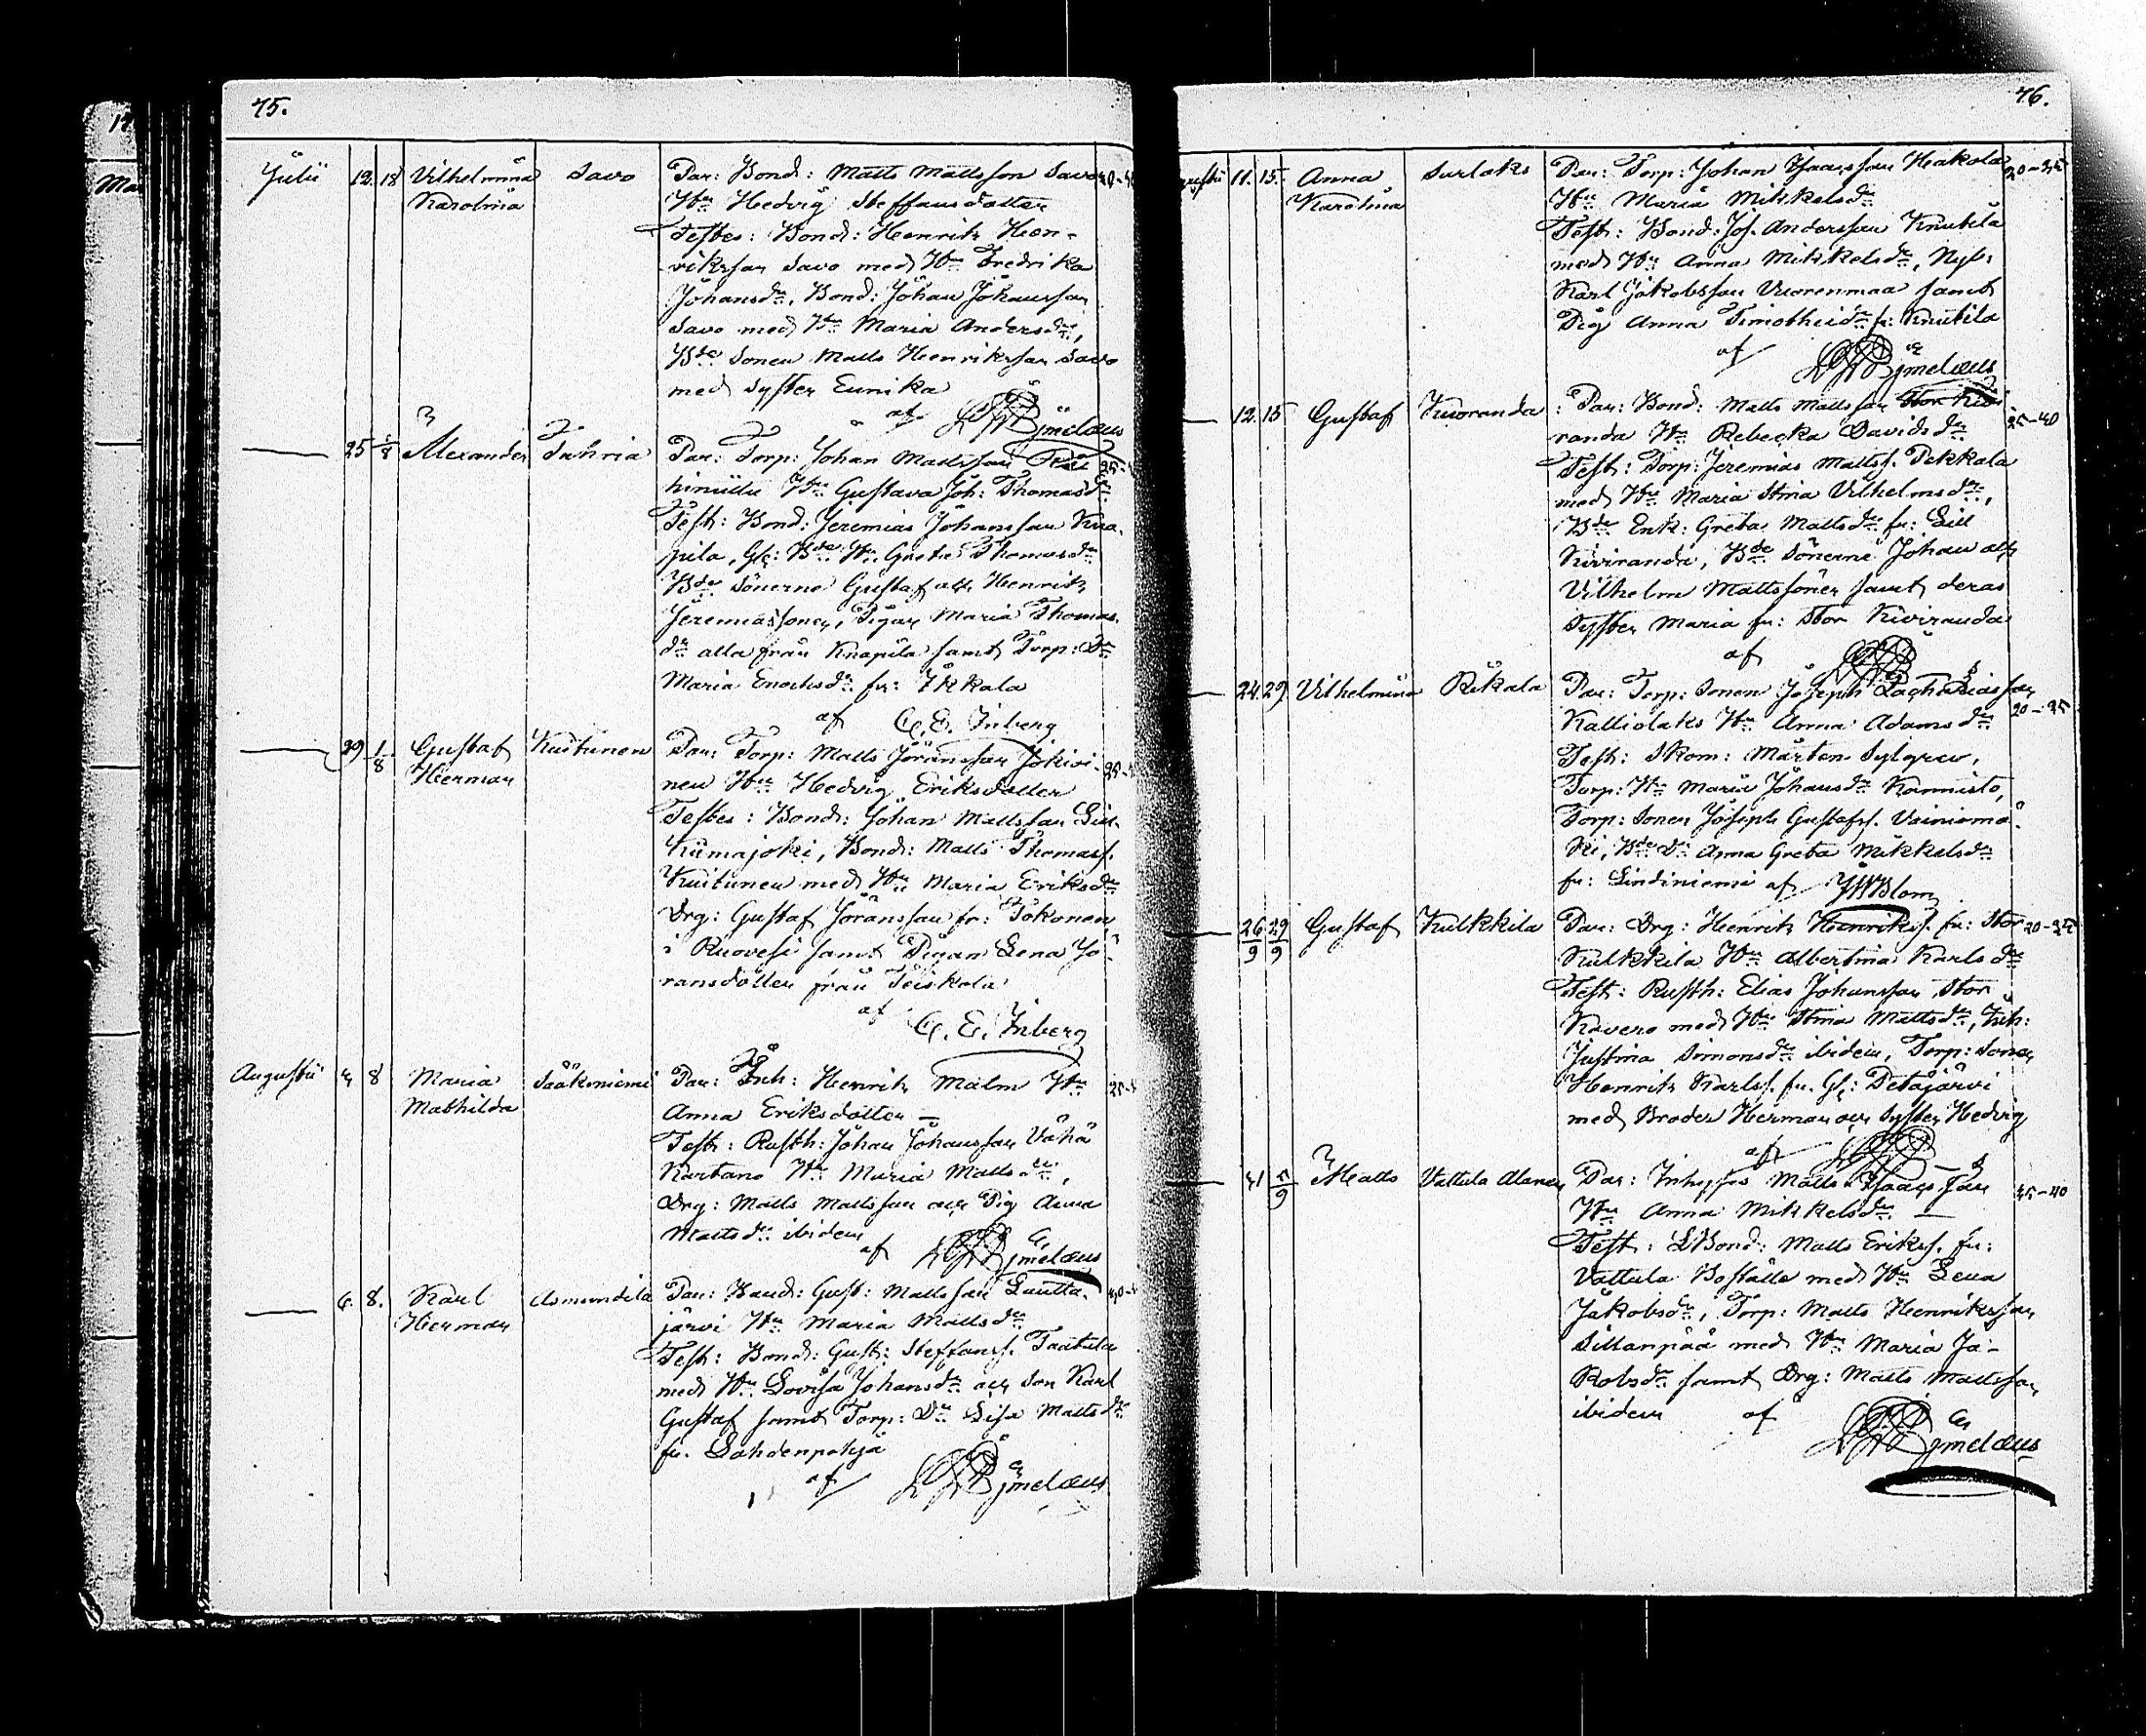 75.
Julii 12. 18 Vilhelmina Savo Par: Bond: Matts Mattsson Savo
Karolina Hu Hedvig Steffansdotter
Testes: Bond: Henrik Hen-
riksson Savo med Hu Fredrika
Johansdr, Bond: Johan Johansson
Savo med Hu Maria Andersdr,
Bde Sonen Matts Henriksson Savo
med syster Eunika
af
25 1/8 Alexander Par: Torp: Johan Mattsson
Hu Gustava Joh: Thomasdr
Test: Bond: Jeremias Johansson Kna-
pila, Gl: Bde Hu Greta Thomasdr
Bde Sönerne Gustaf och Henrik
Jeremiassöner, Pigan Maria Thomas-
dr alla från Knapila samt Torp: Dr
Maria Enochsdr fr: Ikkala
af C. E. Inberg
29 1/8 Gustaf Kuitunen Par: Torp: Matts Göransson Jokivi-
Herman nen Hu Hedvig Eriksdotter
Testes: Bond: Johan Mattsson
Bond: Matts Thomass.
Kuitunen med Hu Maria Eriksdr
Drg: Gustaf Göransson fr:
i Ruovesi samt Pigan Lena Jö-
ransdotter från Teiskola
af C. E. Inberg
Augusti 4 8 Maria Sääksniemi Par: Inh: Henrik Malm Hu
Mathilda Anna Eriksdotter —
Test: Rusth: Johan Johansson Vähä
Kartano Hu Maria Mattsdr,
Drg: Matts Mattsson och Pig Anna
Mattsdr ibidem
af
6. 8. Karl Asmundila Par: Bond: Gust: Mattsson Lautta-
Herman järvi Hu Maria Mattsdr
Test: Bond: Gust: Steffanss. Taatila
med Hu Lovisa Johansdr och Son Karl
Gustaf samt Torp: Dr Lisa Mattsdr
fr. Lahdenpohja
af
76.
11. 15. Anna Surlaks Par: Torp: Johan Isaksson Hakola 20-25
Karolina Hu Maria Mikkelsdr
Test: Bond: Jos. Andersson Knutila
med Hu Anna Mikkelsdr, Nyb:
Karl Jakobsson Vuorenmaa samt
Pig Anna Timotheidr fr: Knutila
af
12. 15 Gustaf Par: Bond: Matts Mattsson Stor Kivi
randa Hu Rebecka Davidsdr
Test: Torp: Jeremias Mattss. Pekkala
med Hu Maria Stina Vilhelmsdr,
Bde Enk: Greta Mattsdr fr: Lill
Kiviranda, Bde Sönerne Johan och
Vilhelm Mattssöner samt deras
syster Maria fr: Stor Kiviranda
af
24. 29. Vilhelmina Rikala Par: Torp: Sonen Joseph Zachariasson
Kalliolaks Hu Anna Adamsdr
Test: Skom: Mårten Sylgren,
Torp: Hu Maria Johansdr Kannisto,
Torp: Sonen Joseph Gustafs. Vainiomä-
ki, Bde Dr Anna Greta Mikkelsdr
fr: Lindiniemi af
26/9 29/9 Gustaf Kulkkila Par: Drg: Henrik Henrikss. fr: Stor 20-25
Kulkkila Hu Albertina Karlsdr
Test: Rusth: Elias Johansson Stor
Kavero med Hu Stina Mattsdr, Inh:
Justina Simonsdr ibidem, Torp: Sonen
Henrik Karlss. fr. Gl: Petäjärvi
med Broder Herman och Syster Hedvig
af
Matts Vattula Alanen Par: Inhyses Matts Isaksson 35-40
Hu Anna Mikkelsdr —
Test: LBond: Matts Erikss. fr:
Vattula Boställe med Hu Lena
Jakobsdr, Torp: Matts Henriksson
Sillanpää med Hu Maria Ja-
kobsdr samt Drg: Matts Mattsson
ibidem af